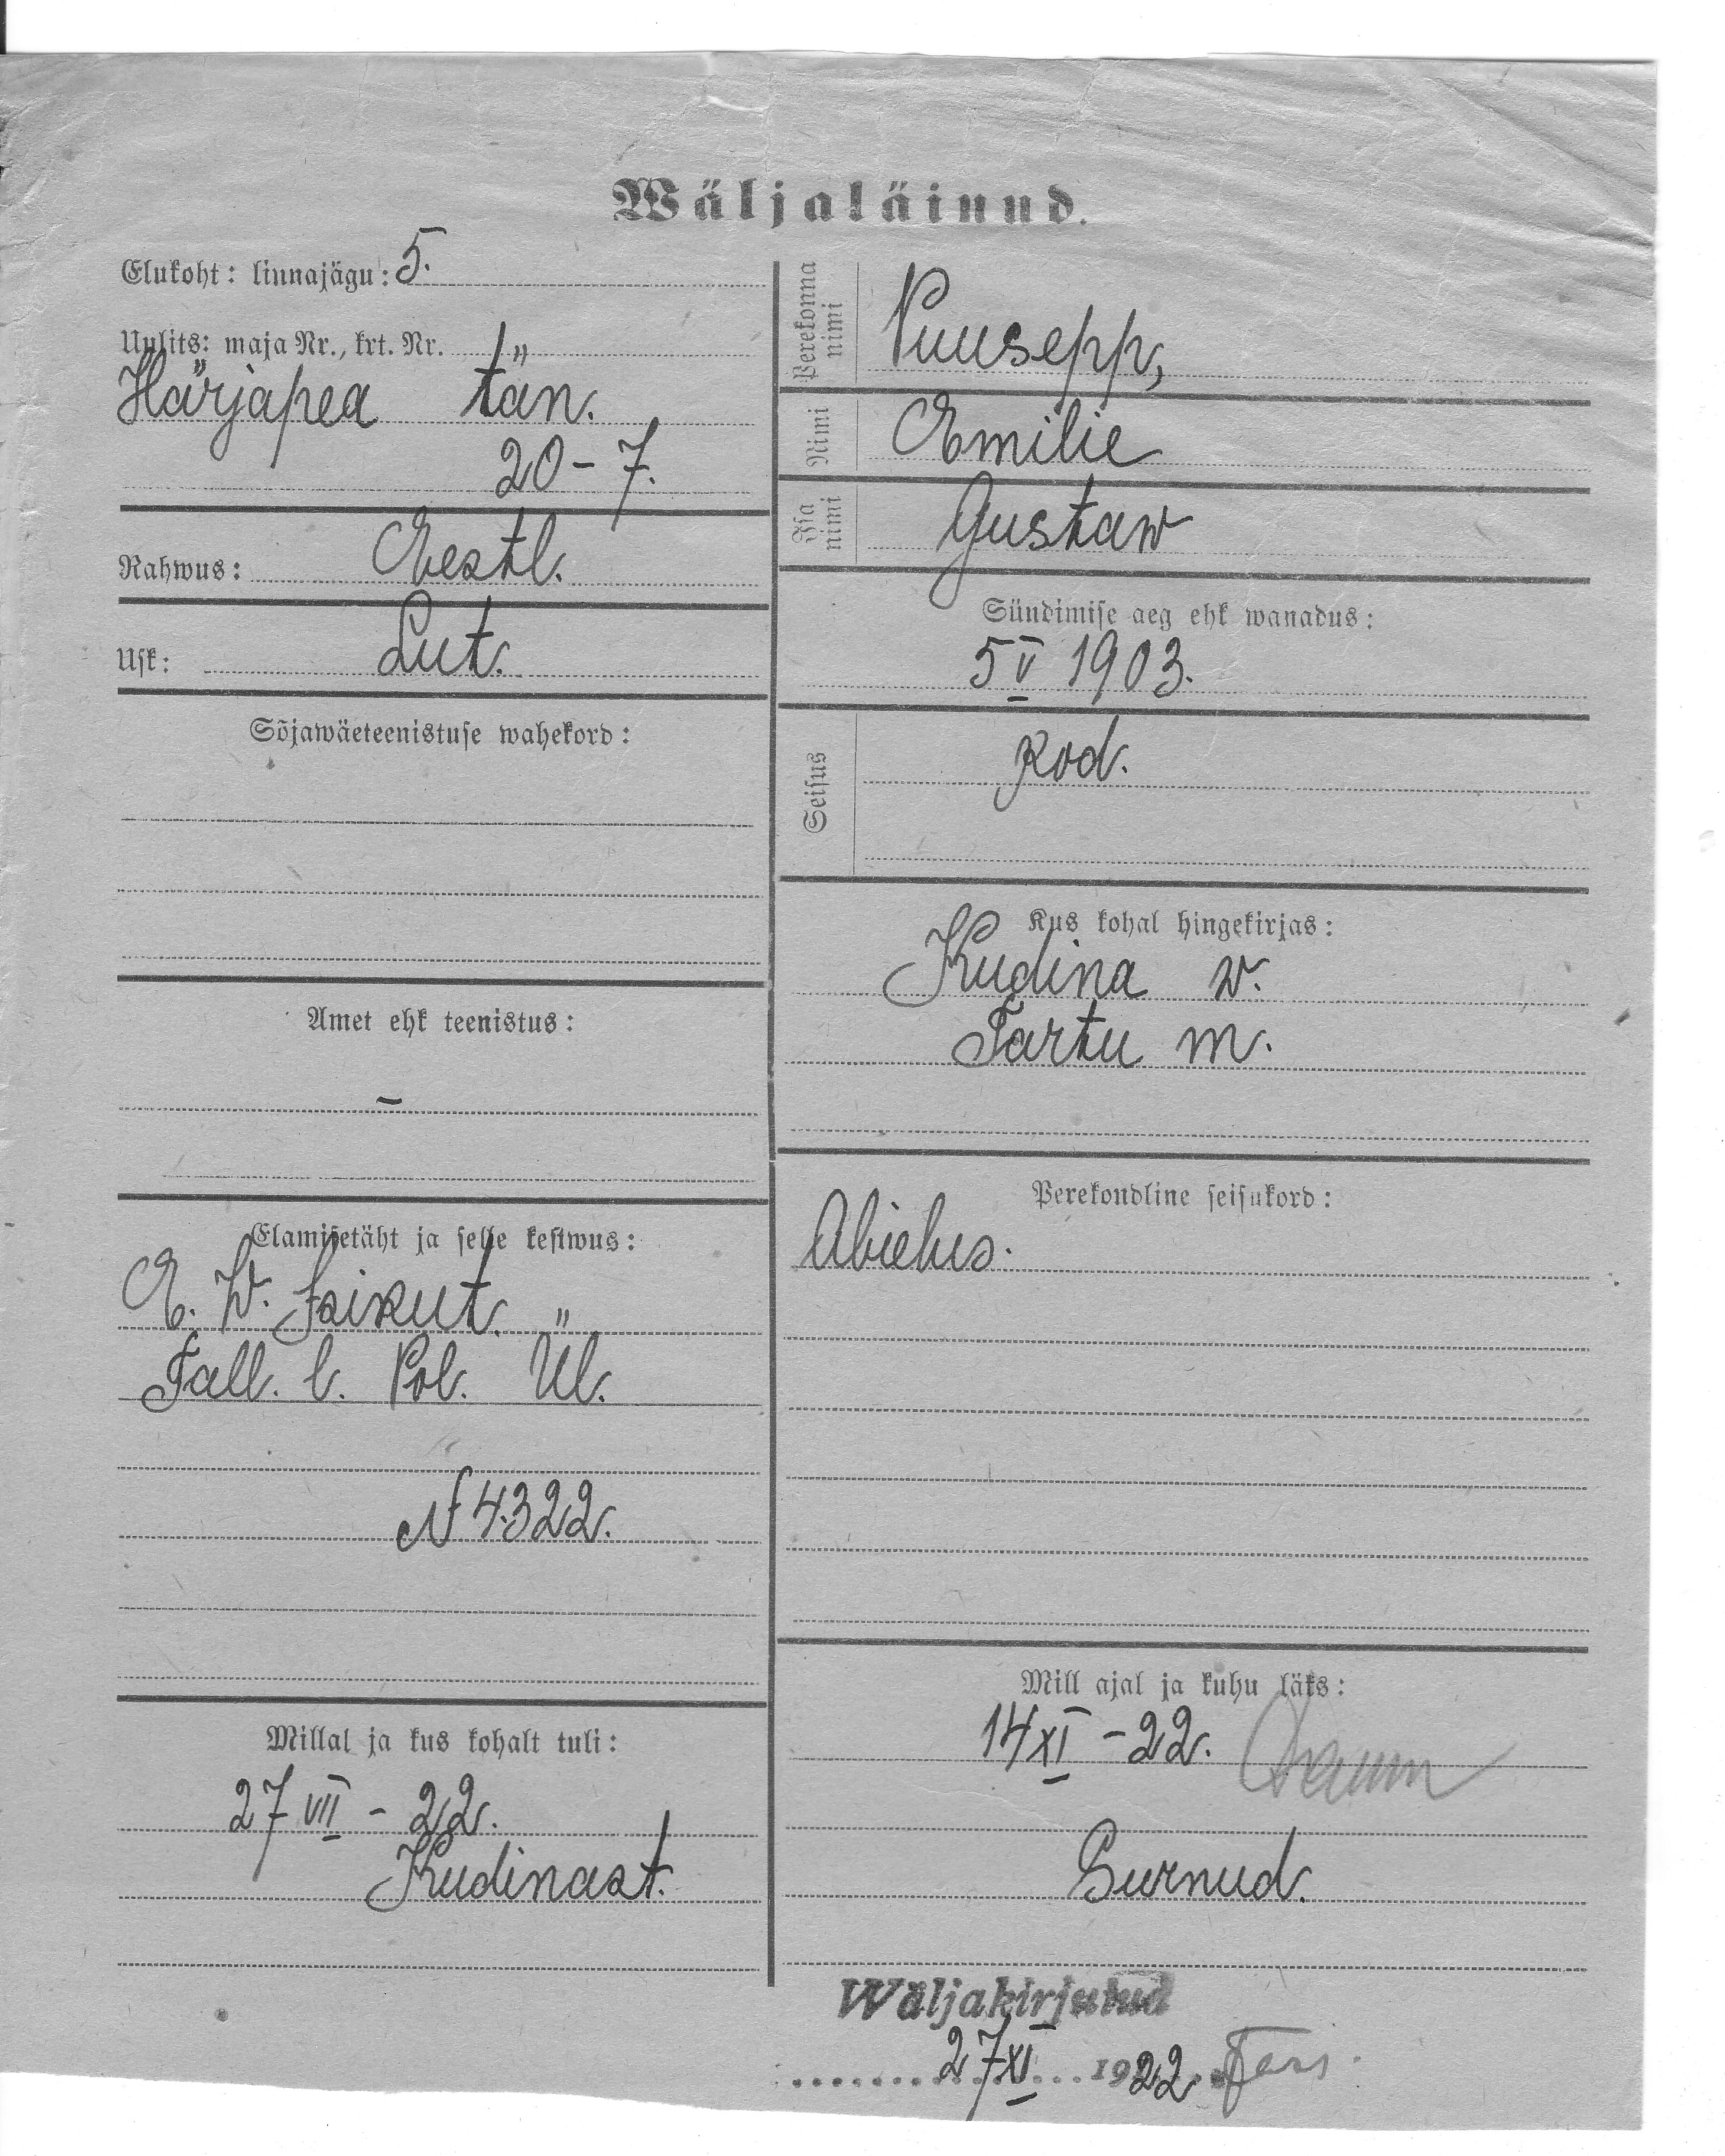 Wäljaläinud.
Elukoht: linnajägu: 5.
Uulits: maja Nr., krt. Nr.
Härjapea tän.
20-7.
Rahwus: Eestl.
Usk: Lut.
Sõjawäeteenistuse wahekord:
Amet ehk teenistus:
–
Elamisetäht ja selle kestwus:
E. W. Isikut.
Tall. l. Pol. Ül.
N 4322.
Millal ja kus kohalt tuli:
27 VII - 22.
Kudinast.
Perekonna nimi Puusepp,
Nimi Emilie
Isa nimi Gustaw
Sündimise aeg ehk wanadus:
5 V 1903.
Seisus kod.
Kus kohal hingekirjas:
Kudina w.
Tartu m.
Perekondline seisukord:
Abielus.
Mill ajal ja kuhu läks:
14 XI - 22.
Surnud.
Wäljakirjutud
27 XI 1922.